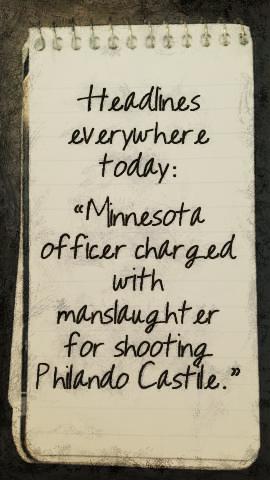 Headlines
everywhere
today:
«Minnesota
officer charged
with
manslaughter
for shooting
Philando Castile.»